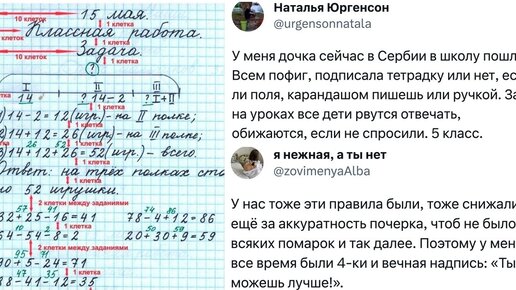 15 мая.
10 клеток
1 клетка
Классная работа.
10 клеток
1 клетка
Задача.
1 клетка
?
I II III
14 ? 14-2 ? I+II
1 клетка
1) 14-2=12 (игр.)-на II полке;
2) 14+12=26 (игр.)-на III полке;
26 52
3) 14+12+26=52 (игр.)-всего.
1 клетка
Ответ: на трёх полках сто
ло 52 игрушки.
2 клетки между заданиями
57 41 74 86
32+25-16=41 78-4+12=86
1 клетка
54-54-8=2 20+30+9=59
2 клетки между заданиями
95 71
90+5-24=71
1 клетка
47 35
-12=35.
Наталья Юргенсон
@urgensonnatala
У меня дочка сейчас в Сербии в школу пошл
Всем пофиг, подписала тетрадку или нет, ес
ли поля, карандашом пишешь или ручкой. За
на уроках все дети рвутся отвечать,
обижаются, если не спросили. 5 класс.
я нежная, а ты нет
@zovimenyaAlba
У нас тоже эти правила были, тоже снижали
ещё за аккуратность почерка, чтоб не было
всяких помарок и так далее. Поэтому у мен
все время были 4-ки и вечная надпись: «Ты
можешь лучше!».